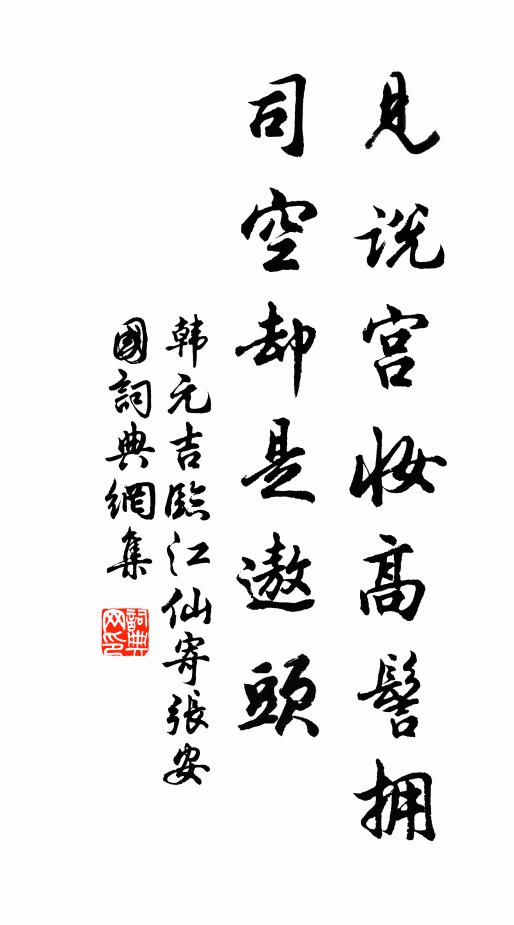 见说宫妆高髻拥
司空却是遨头
韩元吉临江仙寄張安
國詞典網集
詞典
网印